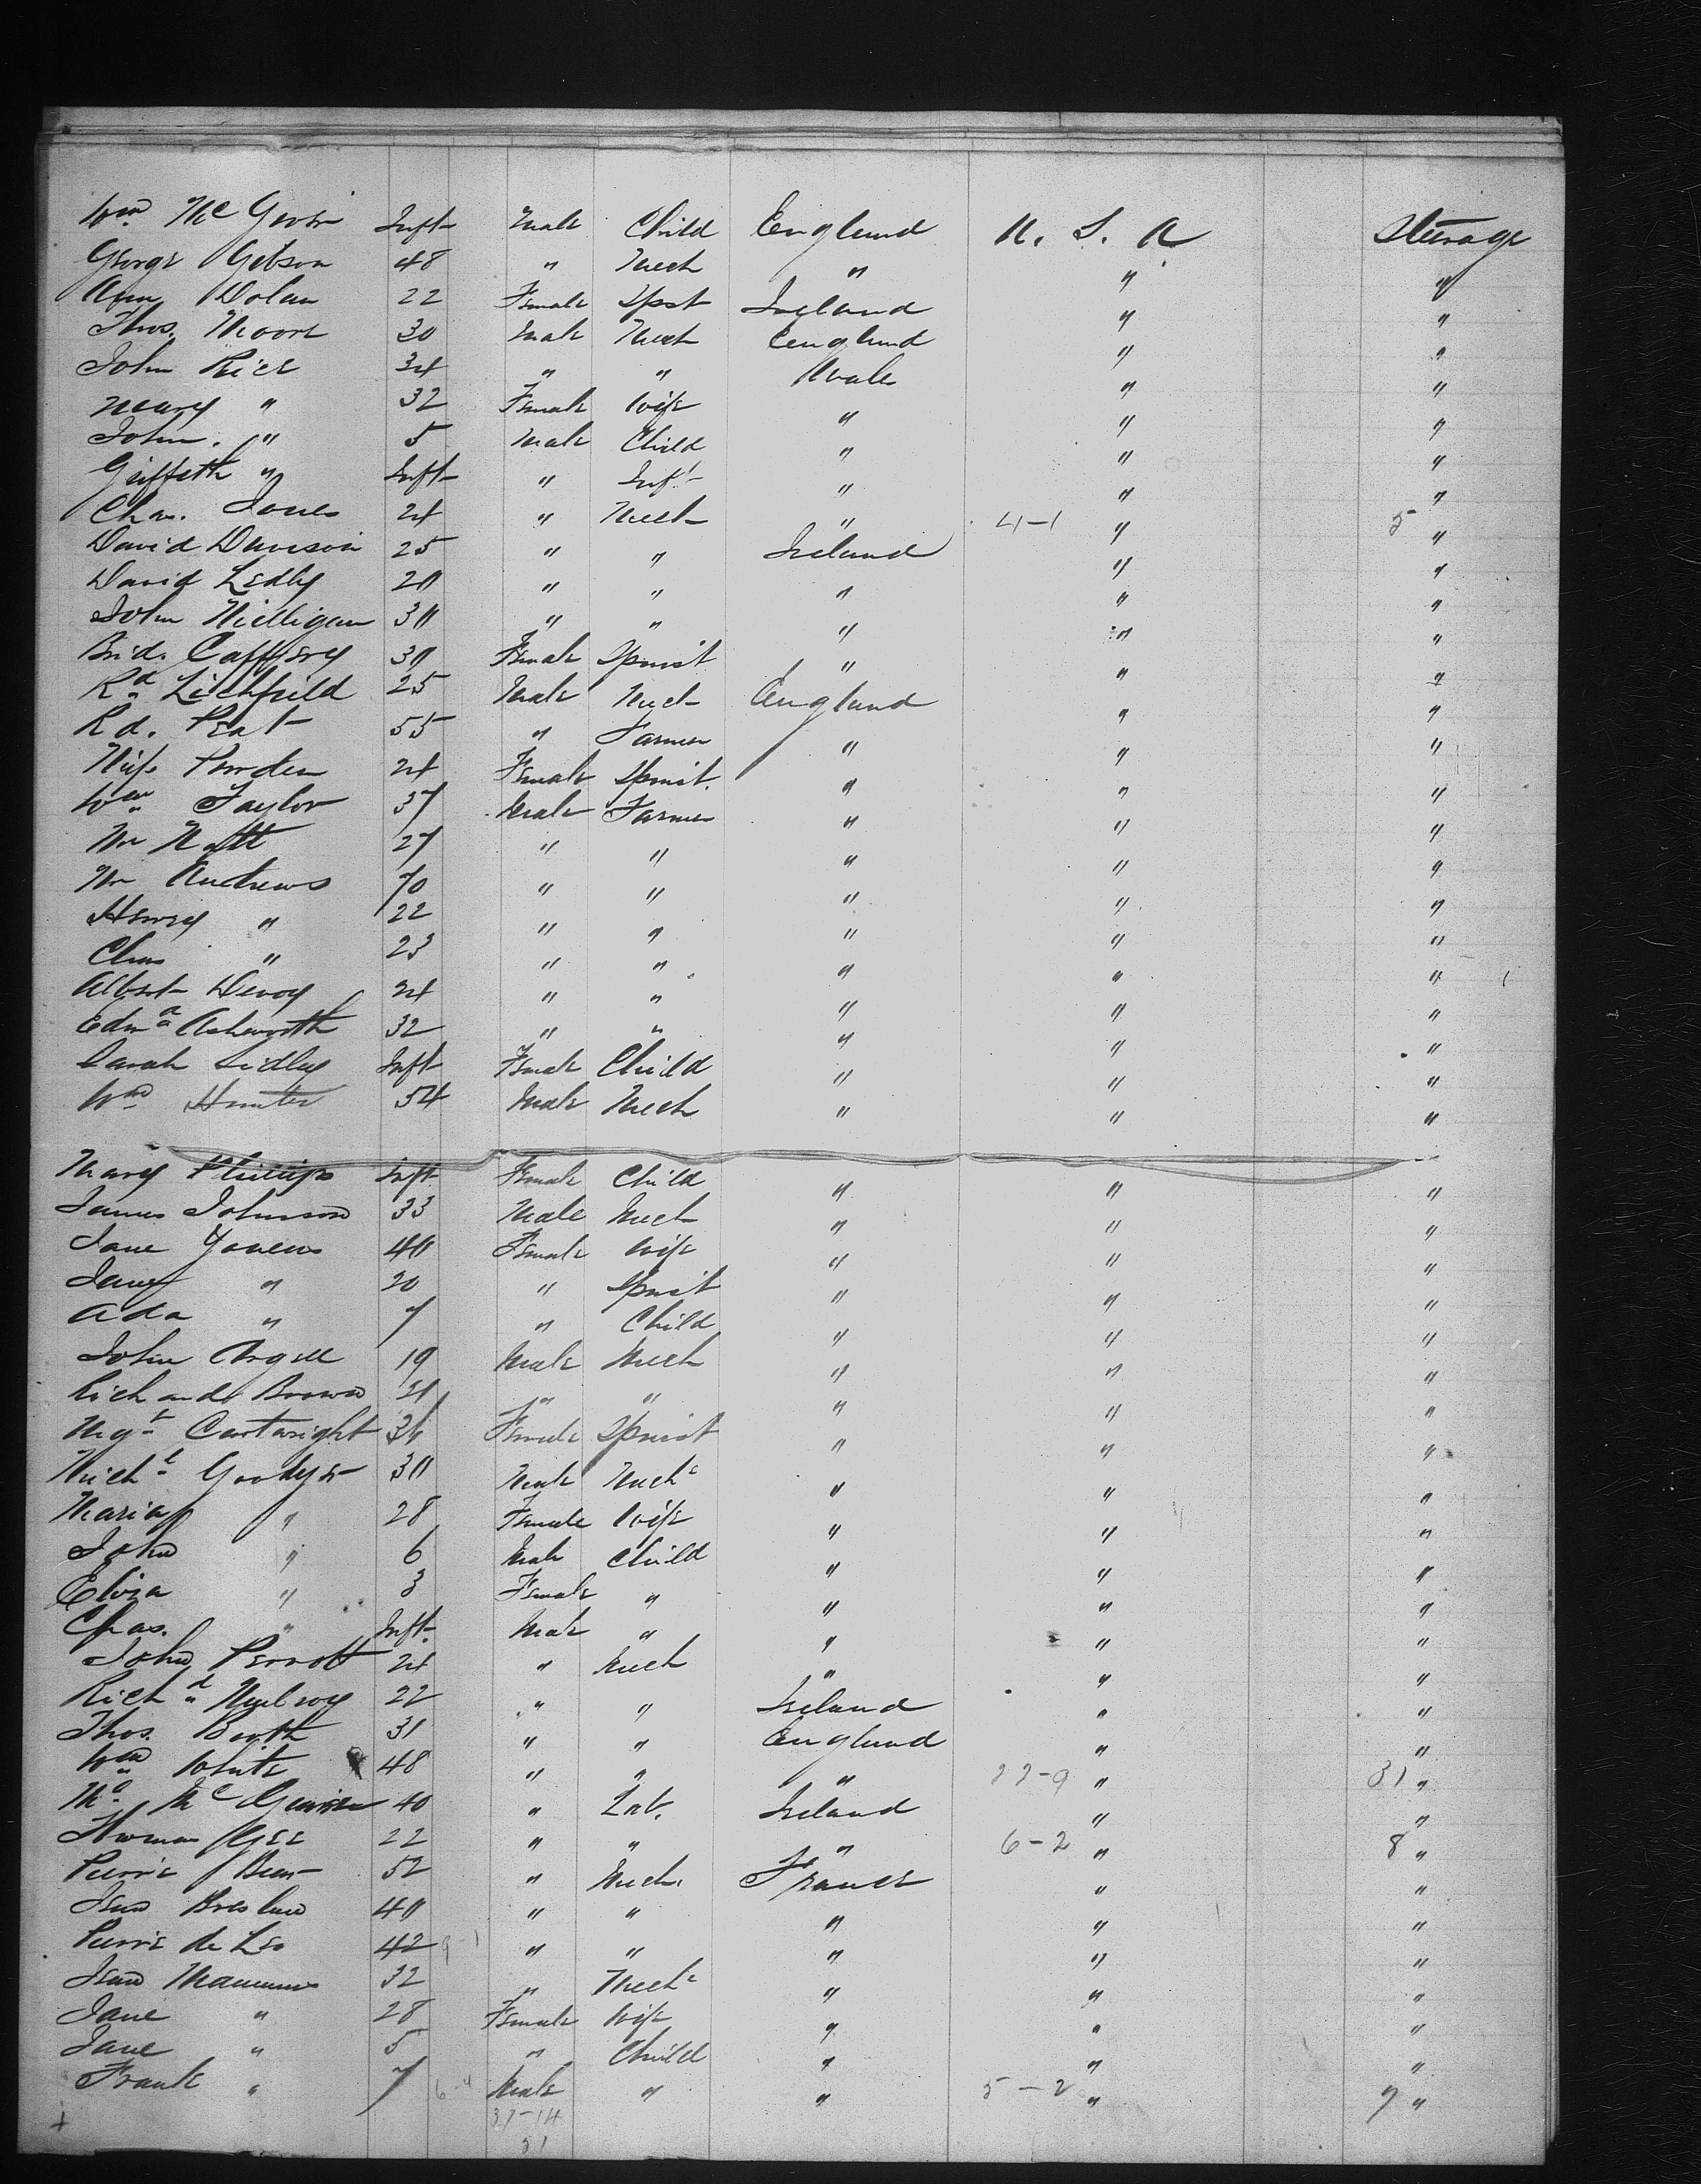 Wm McGovern Inft Male Child England U. S. A Steerage
George Gibson 48 " Mech " " "
Ann Dolan 22 Female Spst Ireland " "
Thos. Moore 30 Male Mech England " "
John Rice 34 " " Wale " "
Mary " 32 Female Wife " " "
John. " 5 Male Child " " "
Griffeth " Inft " Inft " " "
Chas. Jones 24 " Mech " 4-1 " 5 "
David Davison 25 " " Ireland " "
David Ledly 20 " " " " "
John Milligan 30 " " " " "
Brid. Caffery 30 Female Spinst " " "
Rd Lichfield 25 Male Mech England " "
Rd. Peat 55 " Farmer " " "
Miss 24 Female Spinst. " " "
Wm Taylor 37 Male Farmer " " "
Mr Nott 27 " " " " "
Mr Andrews 70 " " " " "
Henry " 22 " " " " "
Chas " 23 " " " " "
Albert Devoy 24 " " " " "
Edmd Ashworth 32 " " " " "
Sarah Lidley Inft Female Child " " "
Wm Hunter 54 Male Mech " " "
Mary Phillips Inft Female Child " " "
James Johnson 33 Male Mech " " "
Jane 40 Female Wife " " "
Jane " 20 " Spinst " " "
Ada " 7 " Child " " "
John Argell 19 Male Mech " " "
Richard Brown 21 " " " " "
Mgt Cartwright 36 Female Spinst " " "
Michl 30 Male Mech " " "
Maria " 28 Female Wife " " "
John " 6 Male Child " " "
Eliza " 3 Female " " " "
Chas. " Inft. Male " " " "
John Perrott 24 " Mech " " "
Richd Mulroy 22 " " Ireland " "
Thos. Booth 31 " " England " "
Wm White 48 " " " 22-9 " 31 "
40 " Lab. Ireland " "
Thomas Gee 22 " " " 6-2 " 8 "
Pierre 52 " Mech. France " "
Jean Breslau 40 " " " " "
Pierre de Leo 42 9-1 " " " " "
Jean 32 " Mech " " "
Jane " 28 Female Wife " " "
Jane " 5 " Child " " "
Frank " 7 6-4 Male " " 5-2 " 7 "
37-14
51